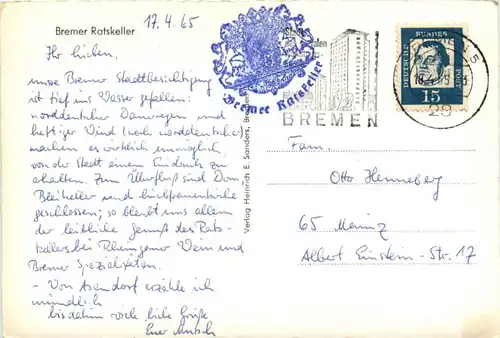 Bremer Ratskeller
17.4.65
Ihr lieben,
unsre Bremer Stadtbesichtigung
ist tief ins Wasser gefallen:
norddeutscher Dauerregen und
heftiger Wind (noch norddeutscher)
machen es wirklich unmöglich
von der Stadt einen Eindruck zu
erhalten. Zum Überfluß sind Dom
Bleikeller und Liebfrauenkirche
geschlossen; so bleibt uns allein
der leibliche Genuß des Rats-
kellers bei Rheingauer Wein und
Bremer Spezialitäten.
– Von Asendorf erzähle ich
mündlich
bis dahin viele liebe Grüße
Euer
Verlag Heinrich E. Sanders, Bremen
Bremer Ratskeller
BREMEN
DEUTSCHE BUNDESPOST
15
28
Fam.
Otto Henneberg
65 Mainz
Albert Einstein-Str. 17